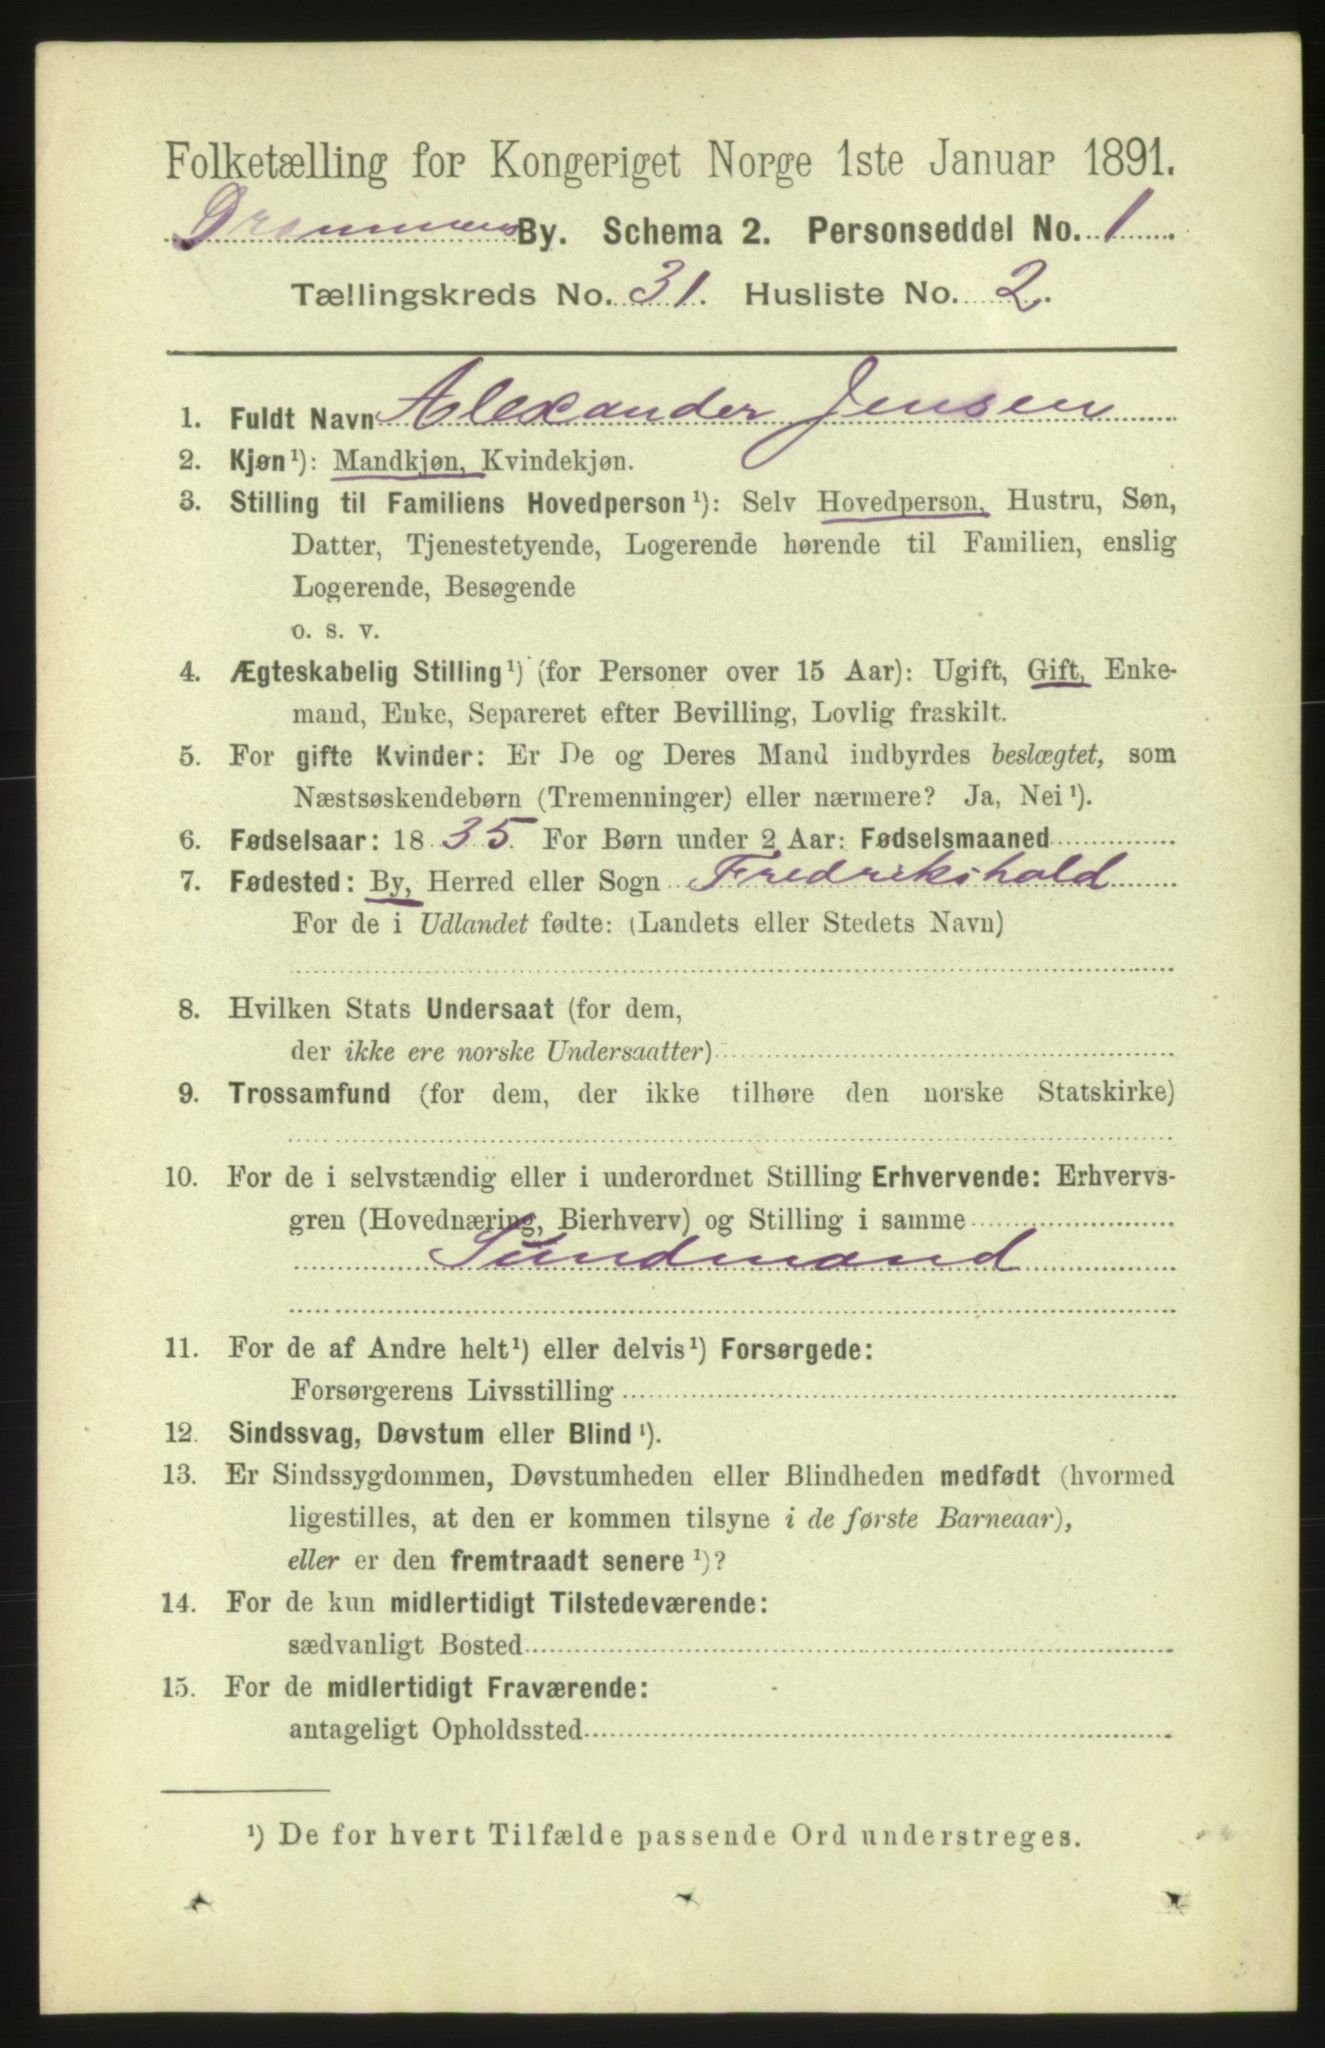 Folketælling for Kongeriget Norge 1ste Januar 1891.
Drammens By. Schema 2. Personseddel No. 1.
Tællingskreds No. 31. Husliste No. 2.
1. Fuldt Navn Alexander Jensen
2. Kjøn¹): Mandkjøn, Kvindekjøn.
3. Stilling til Familiens Hovedperson¹): Selv Hovedperson, Hustru, Søn,
Datter, Tjenestetyende, Logerende hørende til Familien, enslig
Logerende, Besøgende
o. s. v.
4. Ægteskabelig Stilling¹) (for Personer over 15 Aar): Ugift, Gift, Enke-
mand, Enke, Separeret efter Bevilling, Lovlig fraskilt.
5. For gifte Kvinder: Er De og Deres Mand indbyrdes beslægtet, som
Næstsøskendebørn (Tremenninger) eller nærmere? Ja, Nei¹).
6. Fødselsaar: 1835. For Børn under 2 Aar: Fødselsmaaned
7. Fødested: By, Herred eller Sogn Fredrikshald
For de i Udlandet fødte: (Landets eller Stedets Navn)
8. Hvilken Stats Undersaat (for dem,
der ikke ere norske Undersaatter)
9. Trossamfund (for dem, der ikke tilhøre den norske Statskirke)
10. For de i selvstændig eller i underordnet Stilling Erhvervende: Erhvervs-
gren (Hovednæring, Bierhverv) og Stilling i samme
Sundmand
11. For de af Andre helt¹) eller delvis¹) Forsørgede:
Forsørgerens Livsstilling
12. Sindssvag, Døvstum eller Blind¹).
13. Er Sindssygdommen, Døvstumheden eller Blindheden medfødt (hvormed
ligestilles, at den er kommen tilsyne i de første Barneaar),
eller er den fremtraadt senere¹)?
14. For de kun midlertidigt Tilstedeværende:
sædvanligt Bosted
15. For de midlertidigt Fraværende:
antageligt Opholdssted
¹) De for hvert Tilfælde passende Ord understreges.